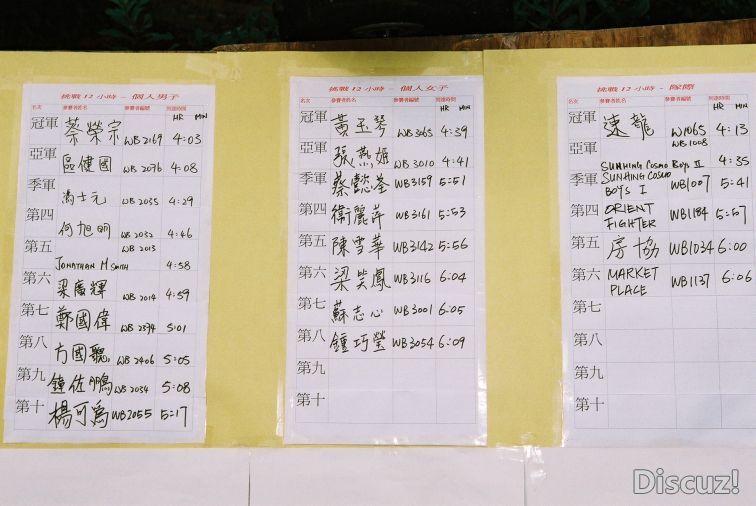 挑戰 12 小時 - 個人男子
名次 參賽者姓名 參賽者編號 到達時間
HR MIN
冠軍 蔡榮宗 WB2169 4:03
亞軍 區健國 WB2076 4:08
季軍 馮士元 WB2035 4:29
第四 何旭明 WB2032 4:46
第五 JONATHAN M SMITH WB2013 4:58
第六 梁廣輝 WB2014 4:59
第七 鄭國偉 WB2394 5:01
第八 方國聰 WB2406 5:05
第九 鐘佐鵬 WB2034 5:08
第十 楊可為 WB2055 5:17
挑戰 12 小時 - 個人女子
名次 參賽者姓名 參賽者編號 到達時間
HR MIN
冠軍 黃玉琴 WB3065 4:39
亞軍 張燕姬 WB3010 4:41
季軍 蔡懿荃 WB3159 5:51
第四 衛麗萍 WB3161 5:53
第五 陳雪華 WB3142 5:56
第六 梁笑鳳 WB3116 6:04
第七 蘇志心 WB3001 6:05
第八 鍾巧瑩 WB3054 6:09
第九
第十
挑戰 12 小時 - 隊際
名次 參賽者姓名 參賽者編號 到達時間
HR MIN
冠軍 速龍 W1065 4:13
亞軍 SUNHING COSMO BOYS II WB1008 4:35
季軍 SUNHING COSMO BOYS I WB1007 5:41
第四 ORIENT FIGHTER WB1184 5:57
第五 房協 WB1034 6:00
第六 MARKET PLACE WB1137 6:06
第七
第八
第九
第十
Discuz!